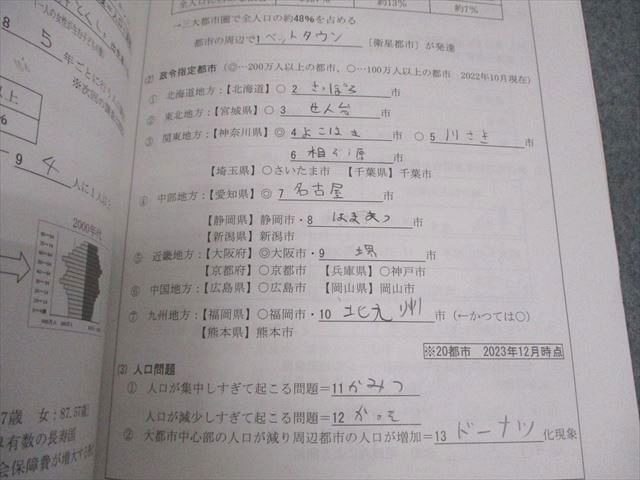 約13%
約7%
→三大都市圏で全人口の約48%を占める
都市の周辺で1 ベットタウン 〔衛星都市〕が発達
(2) 政令指定都市 (◎…200万人以上の都市、○…100万人以上の都市 2022年10月現在)
① 北海道地方:【北海道】○ 2 さっぽろ 市
② 東北地方:【宮城県】○ 3 せん台 市
③ 関東地方:【神奈川県】◎ 4 よこはま 市 ○ 5 川さき 市
6 相もハ原 市
【埼玉県】○さいたま市 【千葉県】千葉市
④ 中部地方:【愛知県】◎ 7 名古屋 市
【静岡県】静岡市・8 はままつ 市
【新潟県】新潟市
⑤ 近畿地方:【大阪府】◎大阪市・9 堺 市
【京都府】○京都市 【兵庫県】○神戸市
⑥ 中国地方:【広島県】○広島市 【岡山県】岡山市
⑦ 九州地方:【福岡県】○福岡市・10 北九州 市(←かつては○)
【熊本県】熊本市
※20都市 2023年12月時点
(3) 人口問題
① 人口が集中しすぎて起こる問題=11 かみつ
人口が減少しすぎて起こる問題=12 かっそ
② 大都市中心部の人口が減り周辺都市の人口が増加=13 ドーナツ 化現象
8 5 年ごとに行
9 4 人に1人以上
2000年代
7歳 女:87.57歳
有数の長寿国
会保障費が増大する